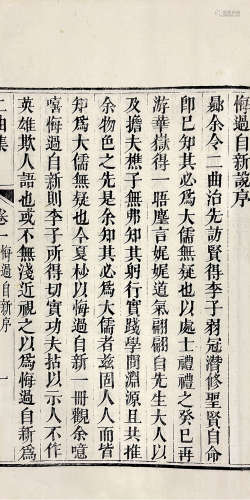 悔過自新說序
曩余令二曲治先訪賢得李子弱冠潛修聖賢自命
卽已知其必爲大儒無疑也以處士禮禮之癸巳再
游華嶽得一晤塵言娓娓道氣翩翩自先生大人以
及擔夫樵子無弗知其躬行實踐學問淵源且共推
余物色之于是先是余知其必爲大儒者茲固人人而皆
知爲大儒無疑也今夏杪以悔過自新一冊觀余噫
嘻悔過自新則李子所得切實功夫拈以示人不作
英雄欺人語也或不無淺近視之以爲悔過自新爲
二曲集
卷一
悔過自新序
一